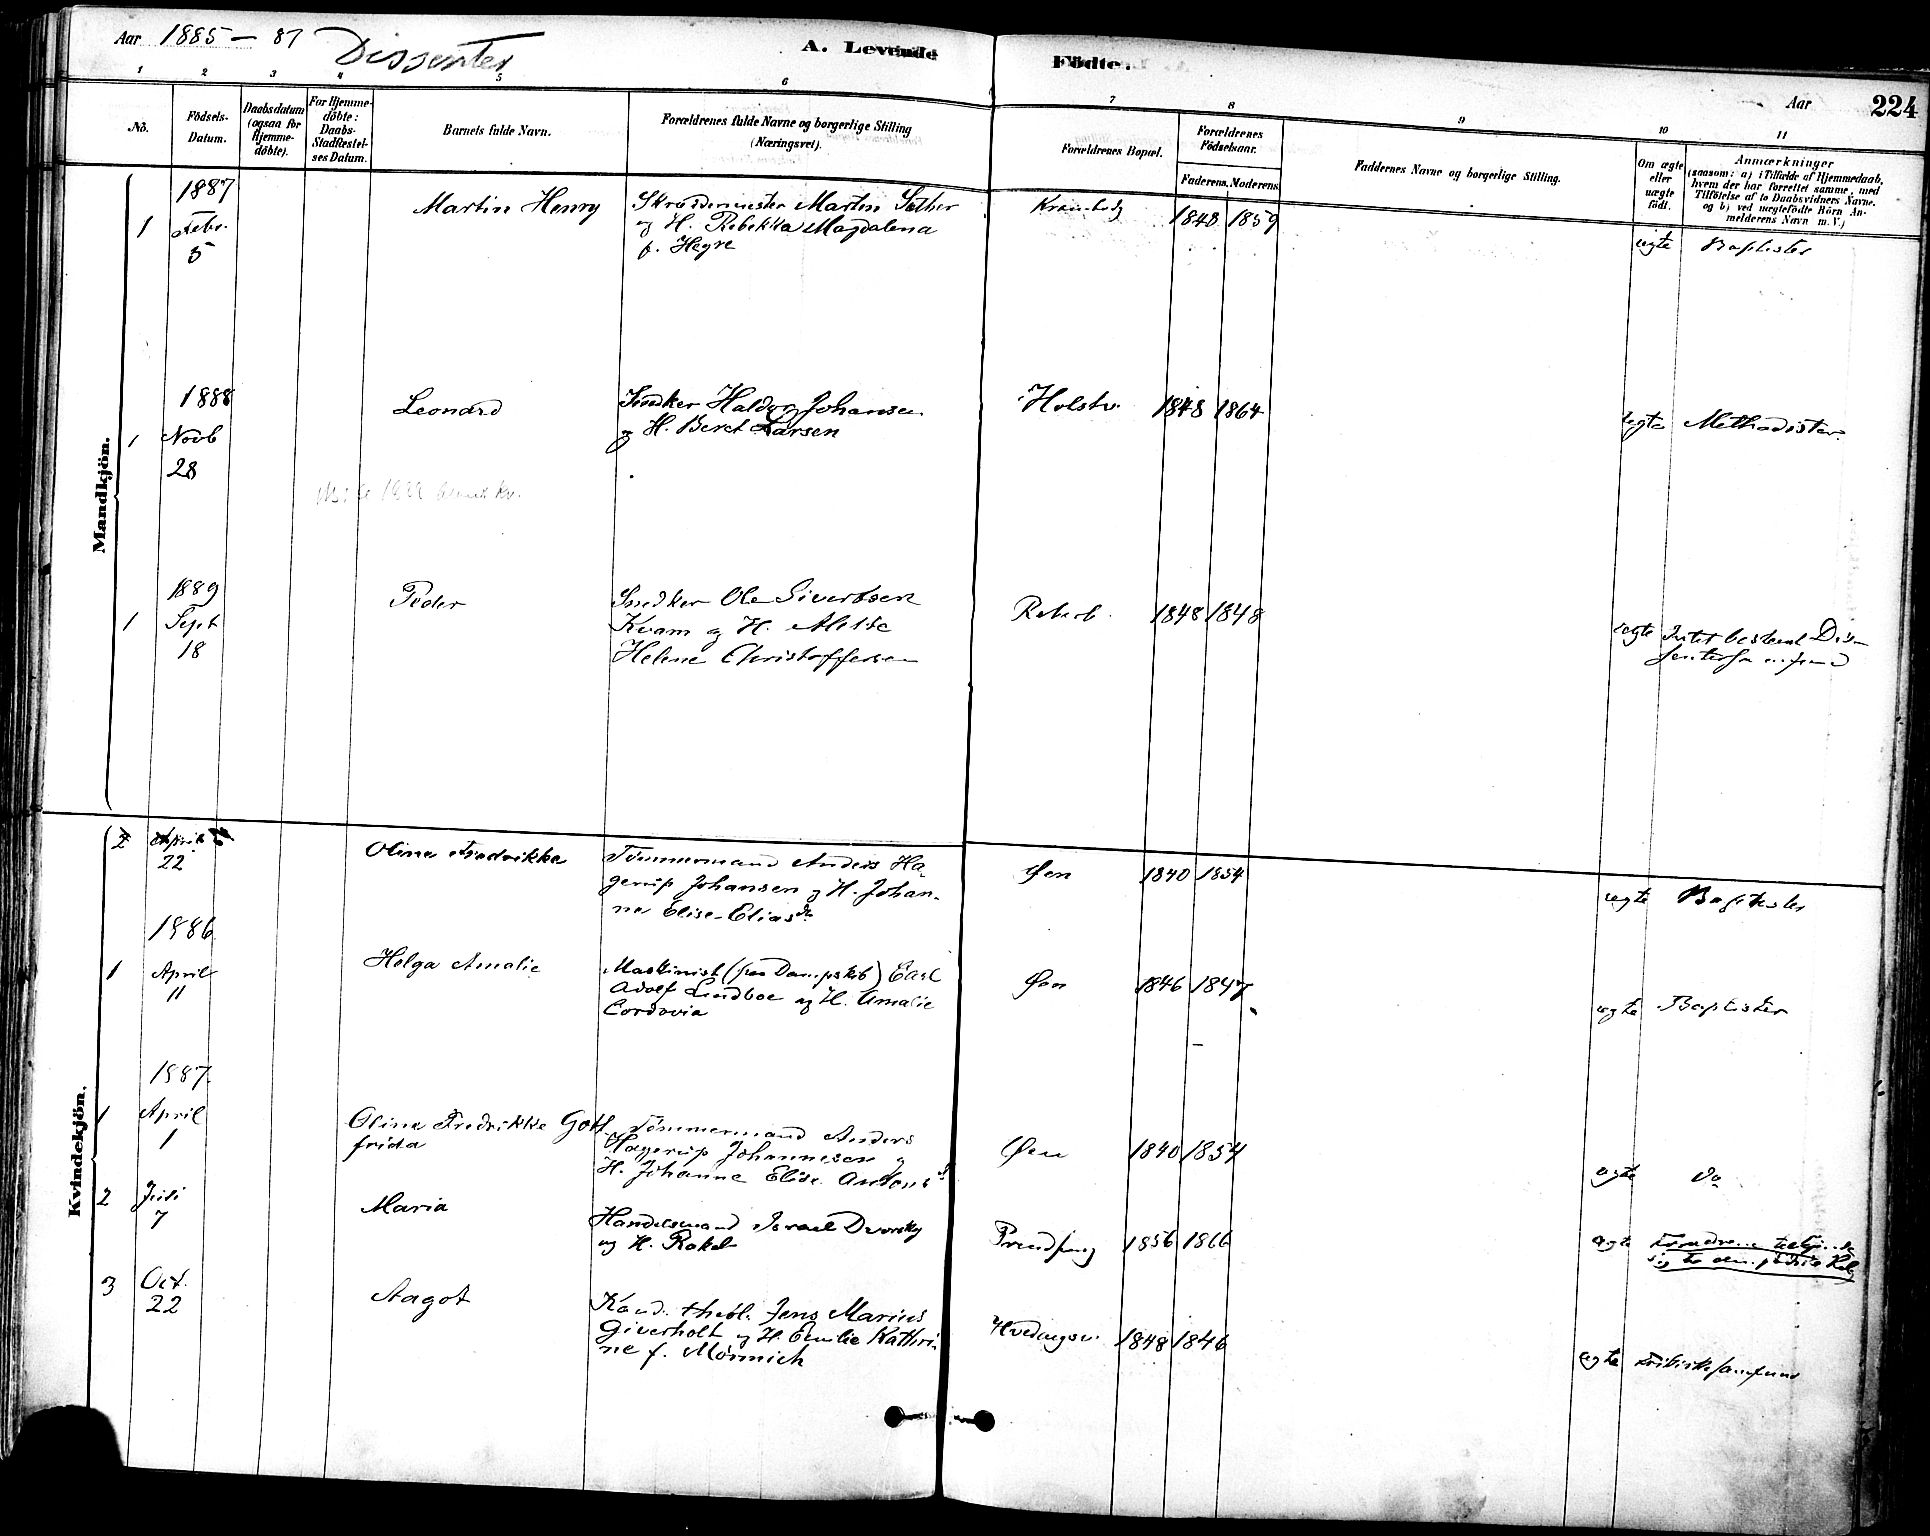 Aar 1885 – 87 Dissenter A. Levende Födte. Aar 224
1 2 3 4 5 6 7 8 9 10 11
No.
Födsels-
Datum.
Daabsdatum
(ogsaa for
Hjemme-
döbte).
For Hjemme-
döbte:
Daabs-
Stadfæstel-
ses Datum.
Barnets fulde Navn.
Forældrenes fulde Navne og borgerlige Stilling
(Næringsvei).
Forældrenes Bopæl.
Forældrenes
Födselsaar.
Faderens. Moderens.
Faddernes Navne og borgerlige Stilling.
Om ægte
eller
uægte
födt.
Anmærkninger
(saasom: a) i Tilfælde af Hjemmedaab,
hvem der har forrettet samme, med
Tilföielse af to Daabsvidners Navne.
og b) ved uægtefödte Börn An-
melderens Navn m. V.)
Mandkjön.
1887
1 Febr. 5
Martin Henry
Skræddermester Martin Sæther
og H. Rebekka Magdalena
f. Hegre
1848 1859
ægte Baptister
1888
1 Novb 28
Leonard
Snedker Haldor Johansen
og H. Beret Larsen
Holstv. 1848 1864
ægte Methodister.
1889
1 Sept 18
Peder
Snedker Ole Sivertsen
Kvam og H. Aletse
Helene Christoffersen
1848 1848
ægte Intet bestemt Dis-
sentersamfund
Kvindekjön.
2 April 22
Olina Fredrikke
Tömmermand Anders Ha-
gerup Johansen og H. Johan-
ne Elise Eliasdr
Øen 1840 1854
ægte Baptister
1886
1 April 11
Helga Amalie
Maskinist (paa Dampskib) Carl
Adolf Lindboe og H. Amalie
Cordovia
Øen 1846 1847
ægte Baptister
1887.
1 April 1
Olina Fredrikke Gott-
frida
Tömmermand Anders
Hagerup Johannesen og
H. Johanne Elise Antons
Øen 1840 1854
ægte do
2 Juli 7
Maria
Handelsmand Israel Dvorsky
og H. Rakel
1856 1866
ægte
3 Oct. 22
Aagot
Kand. theol. Jens Marius
Giverholt og H. Emilie Kathri-
ne f. Mönnich
1848 1846
ægte Frikirkesamfund